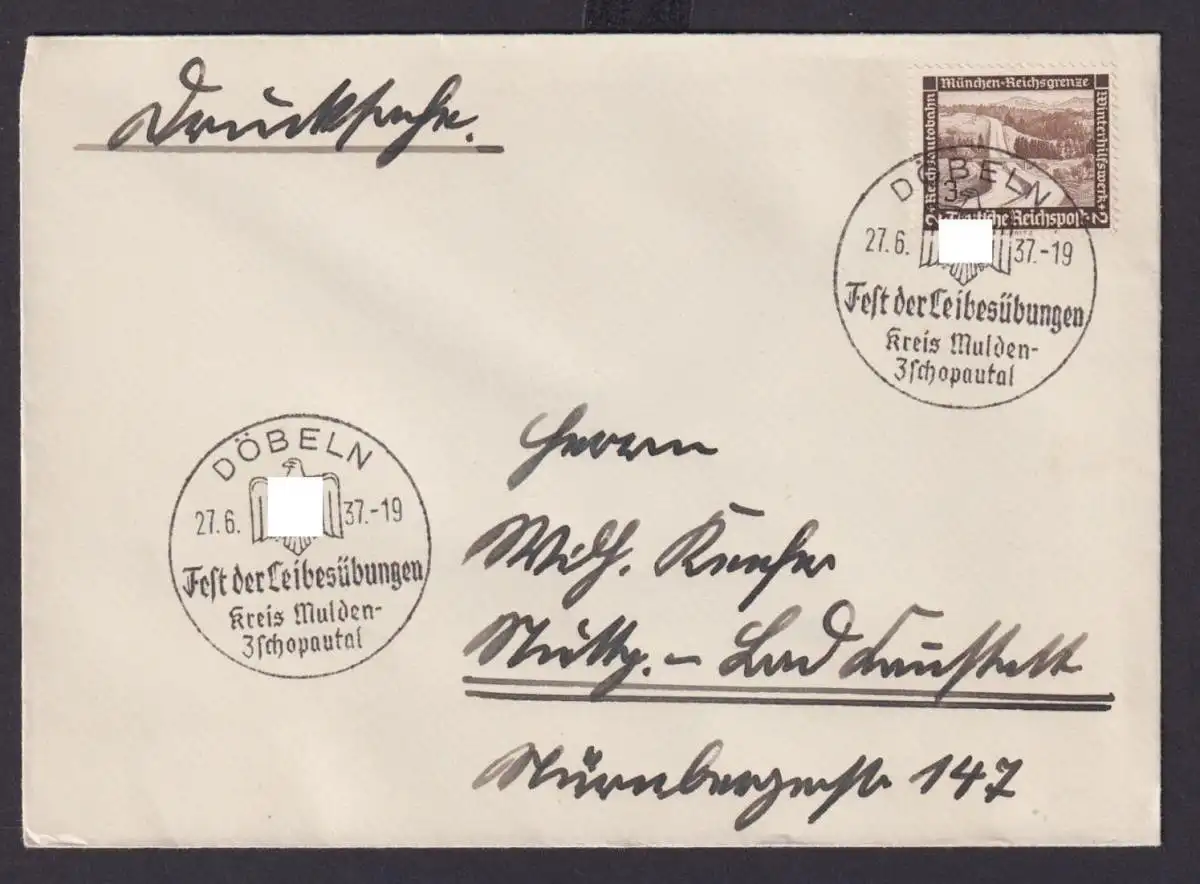 Drucksache.
München-Reichsgrenze
2+Reichsautobahn
Winterhilfswerk+2
Deutsche Reichspost
DÖBELN
27.6. 37.-19
Fest der Leibesübungen
Kreis Mulden-
Zschopautal
DÖBELN
27.6. 37.-19
Fest der Leibesübungen
Kreis Mulden-
Zschopautal
Herrn
Wilh.
Stuttg. – Bad Cannstatt
Nürnbergerstr 147